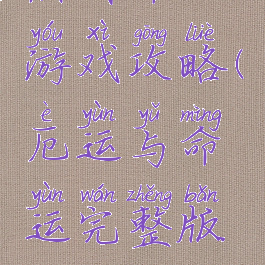 yóu xì gōng lüè
游戏攻略(
è yùn yǔ mìng
厄运与命
yùn wán zhěng bǎn
运完整版